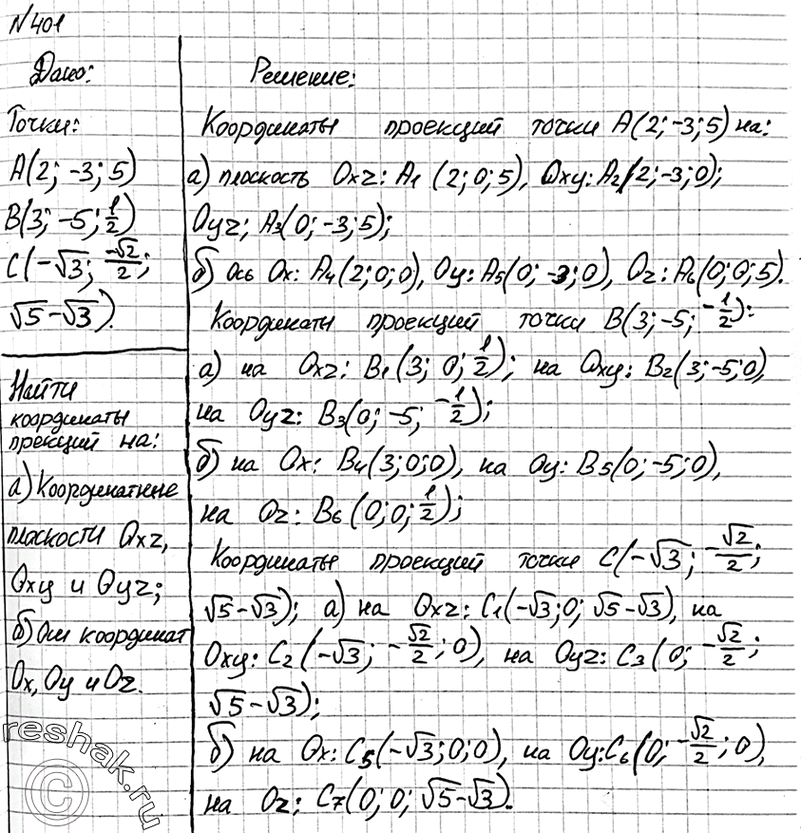 №401
Дано:
Точки:
A(2; -3; 5)
B(3; -5; 1/2)
C(-√3; -√2/2;
√5-√3).
Найти
координаты
прекций на:
а) Координатные
плоскости Oxz,
Oxy и Oyz;
б) Оси координат
Ox, Oy и Oz.
Решение:
Координаты проекций точки A(2; -3; 5) на:
а) плоскость Oxz: A1 (2; 0; 5), Oxy: A2(2; -3; 0);
Oyz; A3(0; -3; 5);
б) Ось Ox: A4(2; 0; 0), Oy: A5(0; -3; 0), Oz: A6(0; 0; 5).
Координаты проекций точки B(3; -5; -1/2):
а) на Oxz: B1(3; 0; 1/2); на Oxy: B2(3; -5; 0),
на Oyz: B3(0; -5; -1/2);
б) на Ox: B4(3; 0; 0), на Oy: B5(0; -5; 0),
на Oz: B6 (0; 0; 1/2);
Координаты проекций точки C(-√3; -√2/2;
√5-√3); а) на Oxz: C1(-√3; 0; √5-√3), на
Oxy: C2 (-√3; -√2/2; 0), на Oyz: C3 (0; -√2/2;
√5-√3);
б) на Ox: C5(-√3; 0; 0), на Oy: C6(0; -√2/2; 0),
на Oz: C7(0; 0; √5-√3).
reshak.ru
©